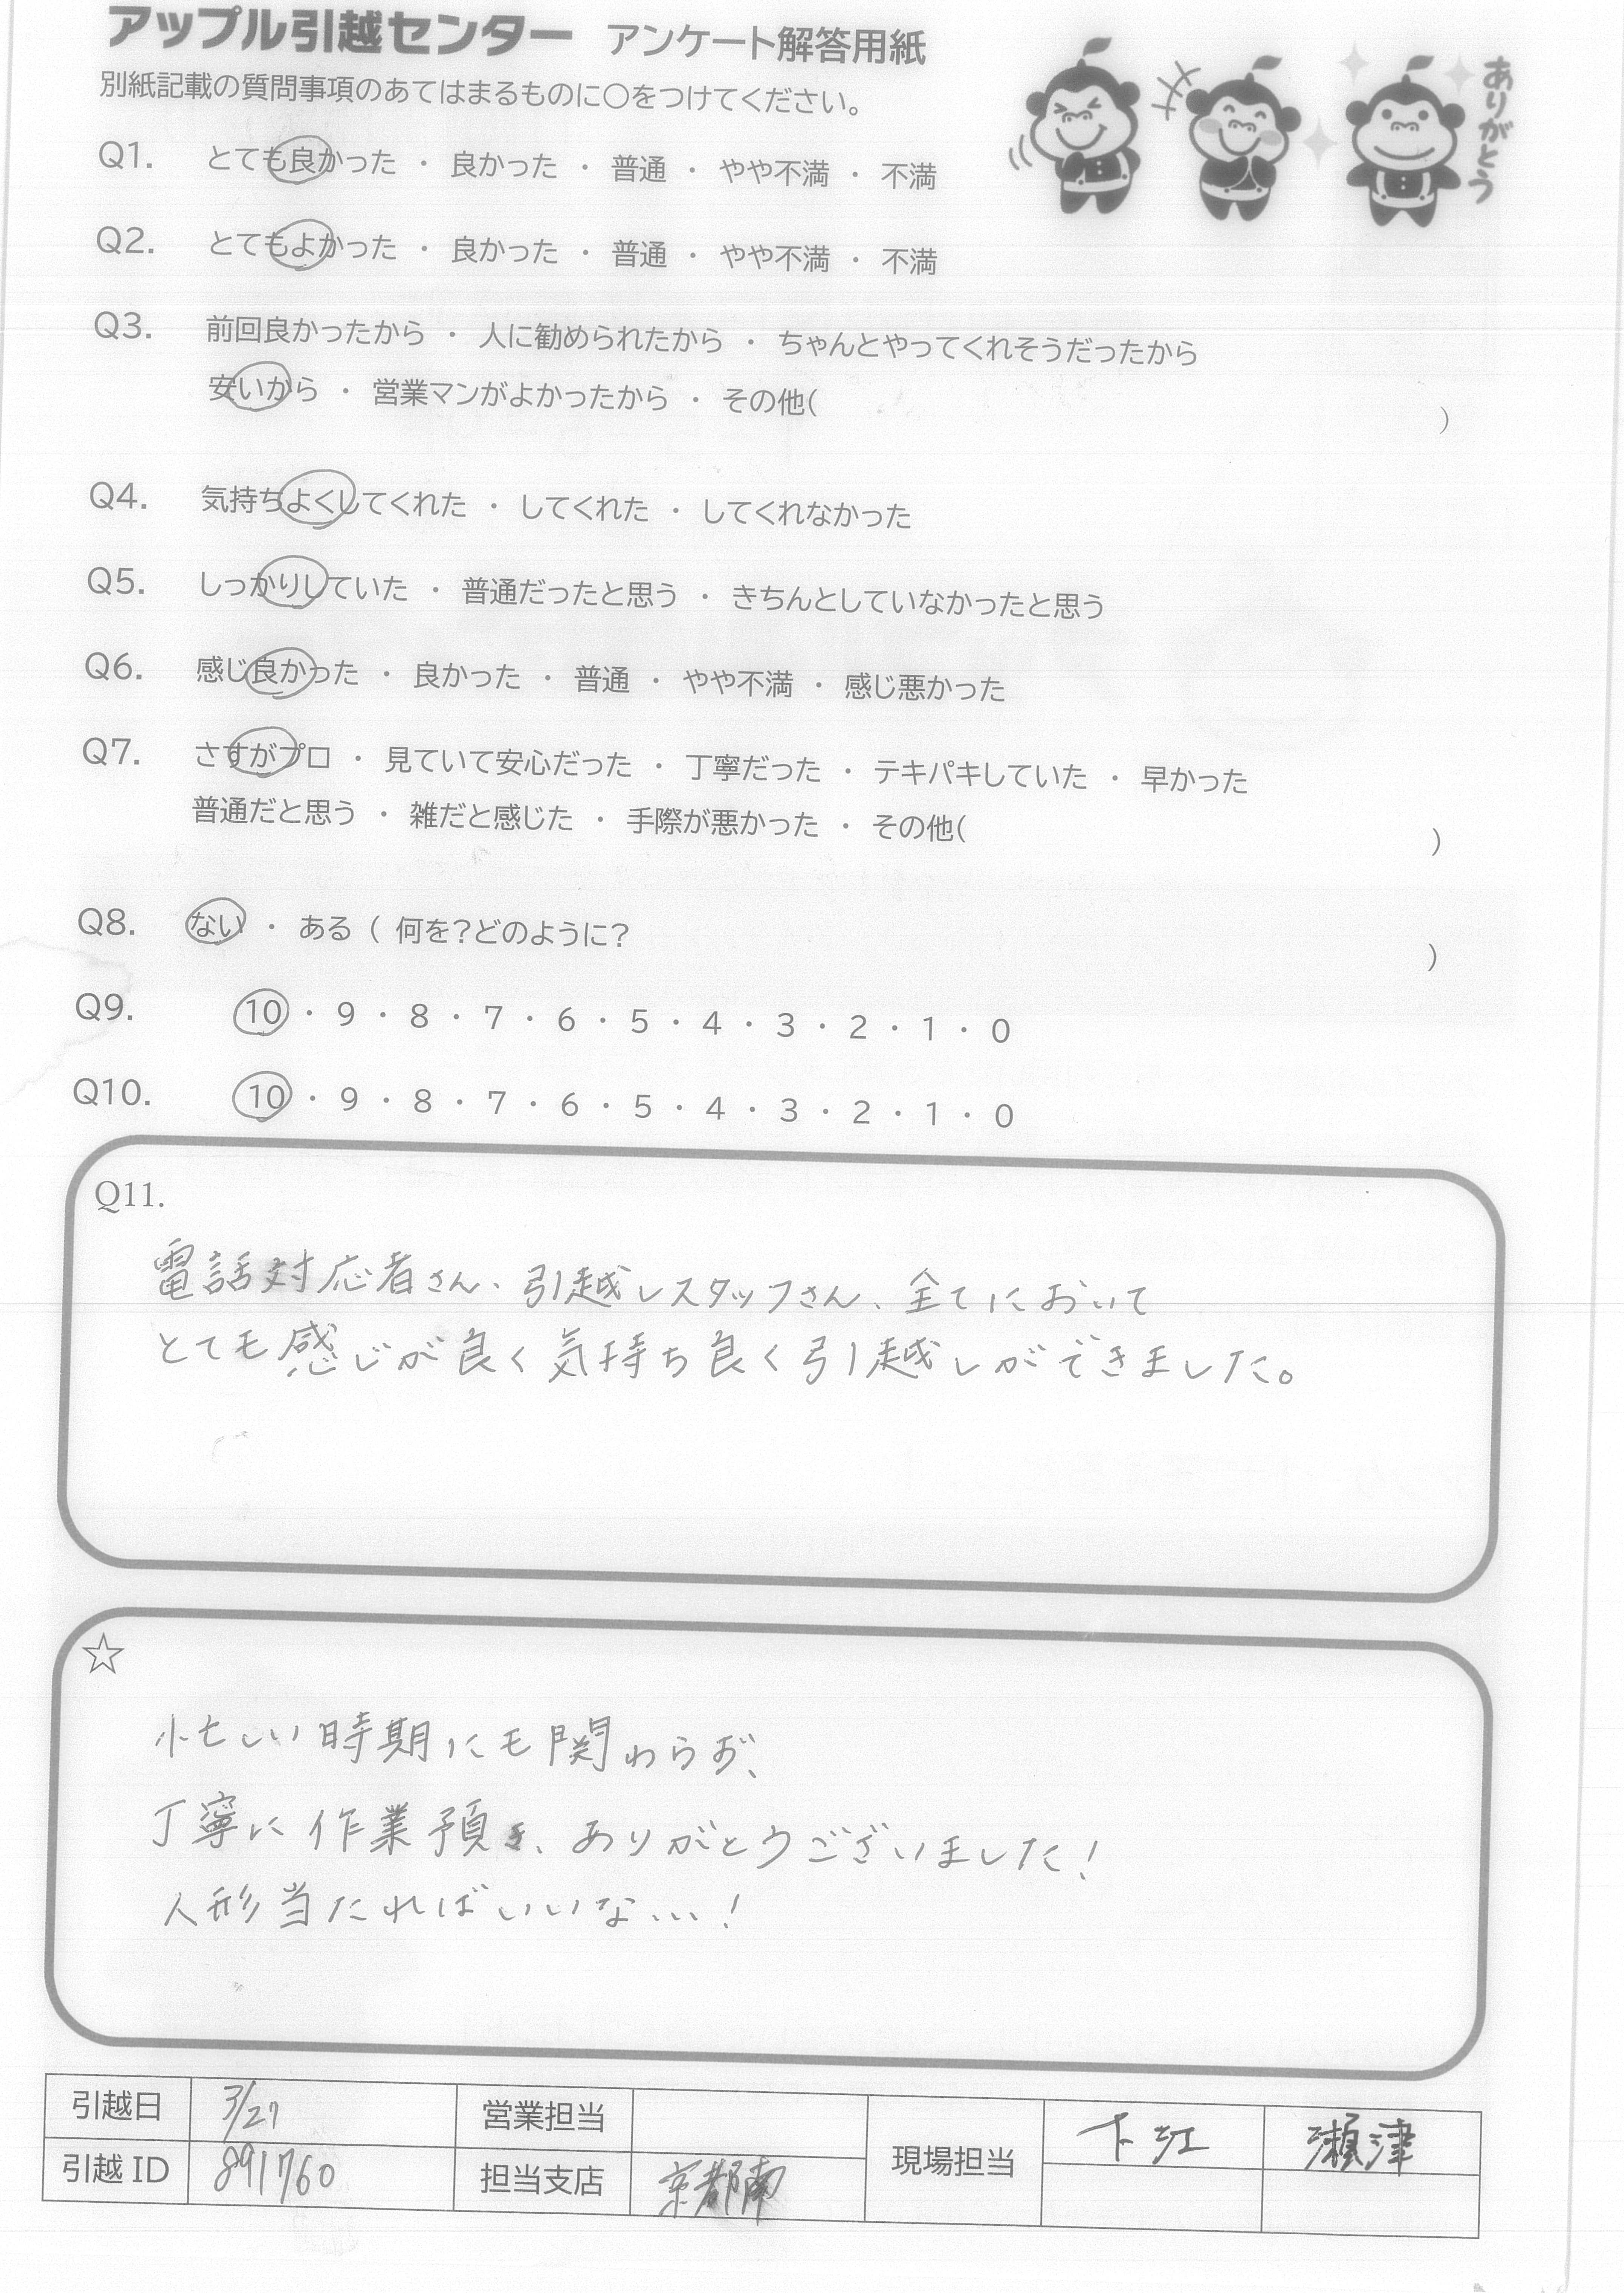 アップル引越センター アンケート解答用紙
別紙記載の質問事項のあてはまるものに○をつけてください。
ありがとう
Q1. とても良かった ・ 良かった ・ 普通 ・ やや不満 ・ 不満
Q2. とてもよかった ・ 良かった ・ 普通 ・ やや不満 ・ 不満
Q3. 前回良かったから ・ 人に勧められたから ・ ちゃんとやってくれそうだったから
安いから ・ 営業マンがよかったから ・ その他( )
Q4. 気持ちよくしてくれた ・ してくれた ・ してくれなかった
Q5. しっかりしていた ・ 普通だったと思う ・ きちんとしていなかったと思う
Q6. 感じ良かった ・ 良かった ・ 普通 ・ やや不満 ・ 感じ悪かった
Q7. さすがプロ ・ 見ていて安心だった ・ 丁寧だった ・ テキパキしていた ・ 早かった
普通だと思う ・ 雑だと感じた ・ 手際が悪かった ・ その他( )
Q8. ない ・ ある ( 何を?どのように? )
Q9. 10 ・ 9 ・ 8 ・ 7 ・ 6 ・ 5 ・ 4 ・ 3 ・ 2 ・ 1 ・ 0
Q10. 10 ・ 9 ・ 8 ・ 7 ・ 6 ・ 5 ・ 4 ・ 3 ・ 2 ・ 1 ・ 0
Q11.
電話対応者さん、引越しスタッフさん、全てにおいて
とても感じが良く気持ち良く引越しができました。
☆
忙しい時期にも関わらず、
丁寧に作業頂き、ありがとうございました!
人形当たればいいな…!
引越日 3/27 営業担当 現場担当 下江 瀬津
引越 ID 891760 担当支店 京都南